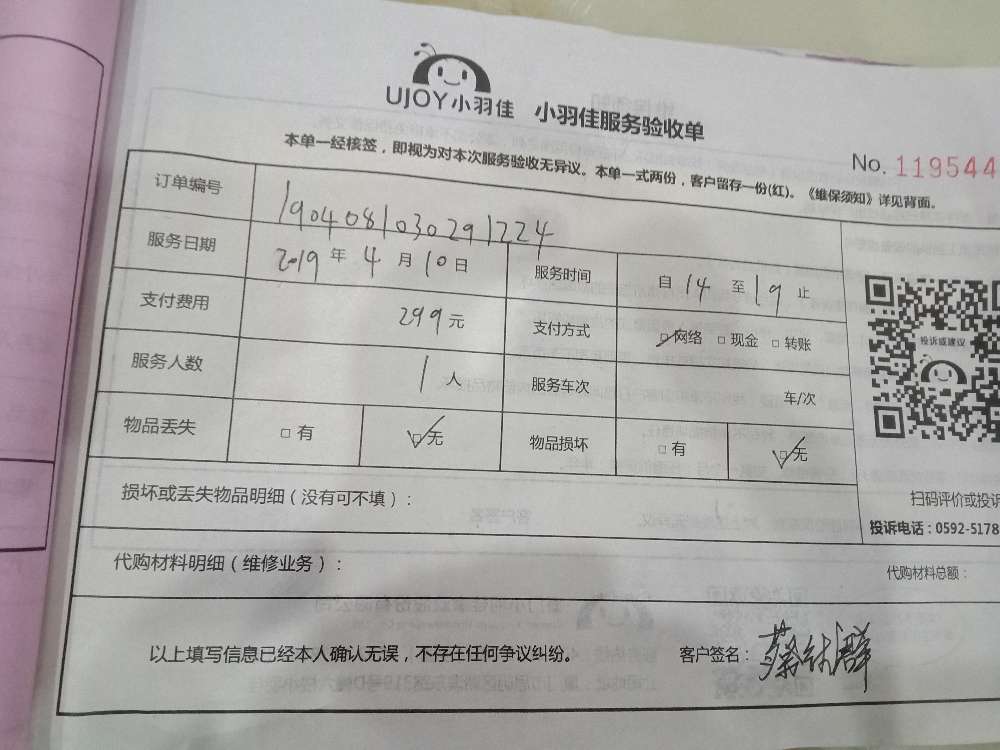 UJOY小羽佳 小羽佳服务验收单
本单一经核签，即视为对本次服务验收无异议。本单一式两份，客户留存一份(红)。《维保须知》详见背面。
No. 119544
订单编号 1904081030291224
服务日期 2019 年 4 月 10 日 服务时间 自 14 至 19 止
支付费用 299 元 支付方式 □网络 □现金 □转账
服务人数 1 人 服务车次 车/次
物品丢失 □有 □无 物品损坏 □有 □无
投诉或建议
扫码评价或投诉
投诉电话：0592-5178
损坏或丢失物品明细（没有可不填）：
代购材料明细（维修业务）： 代购材料总额：
以上填写信息已经本人确认无误，不存在任何争议纠纷。 客户签名：